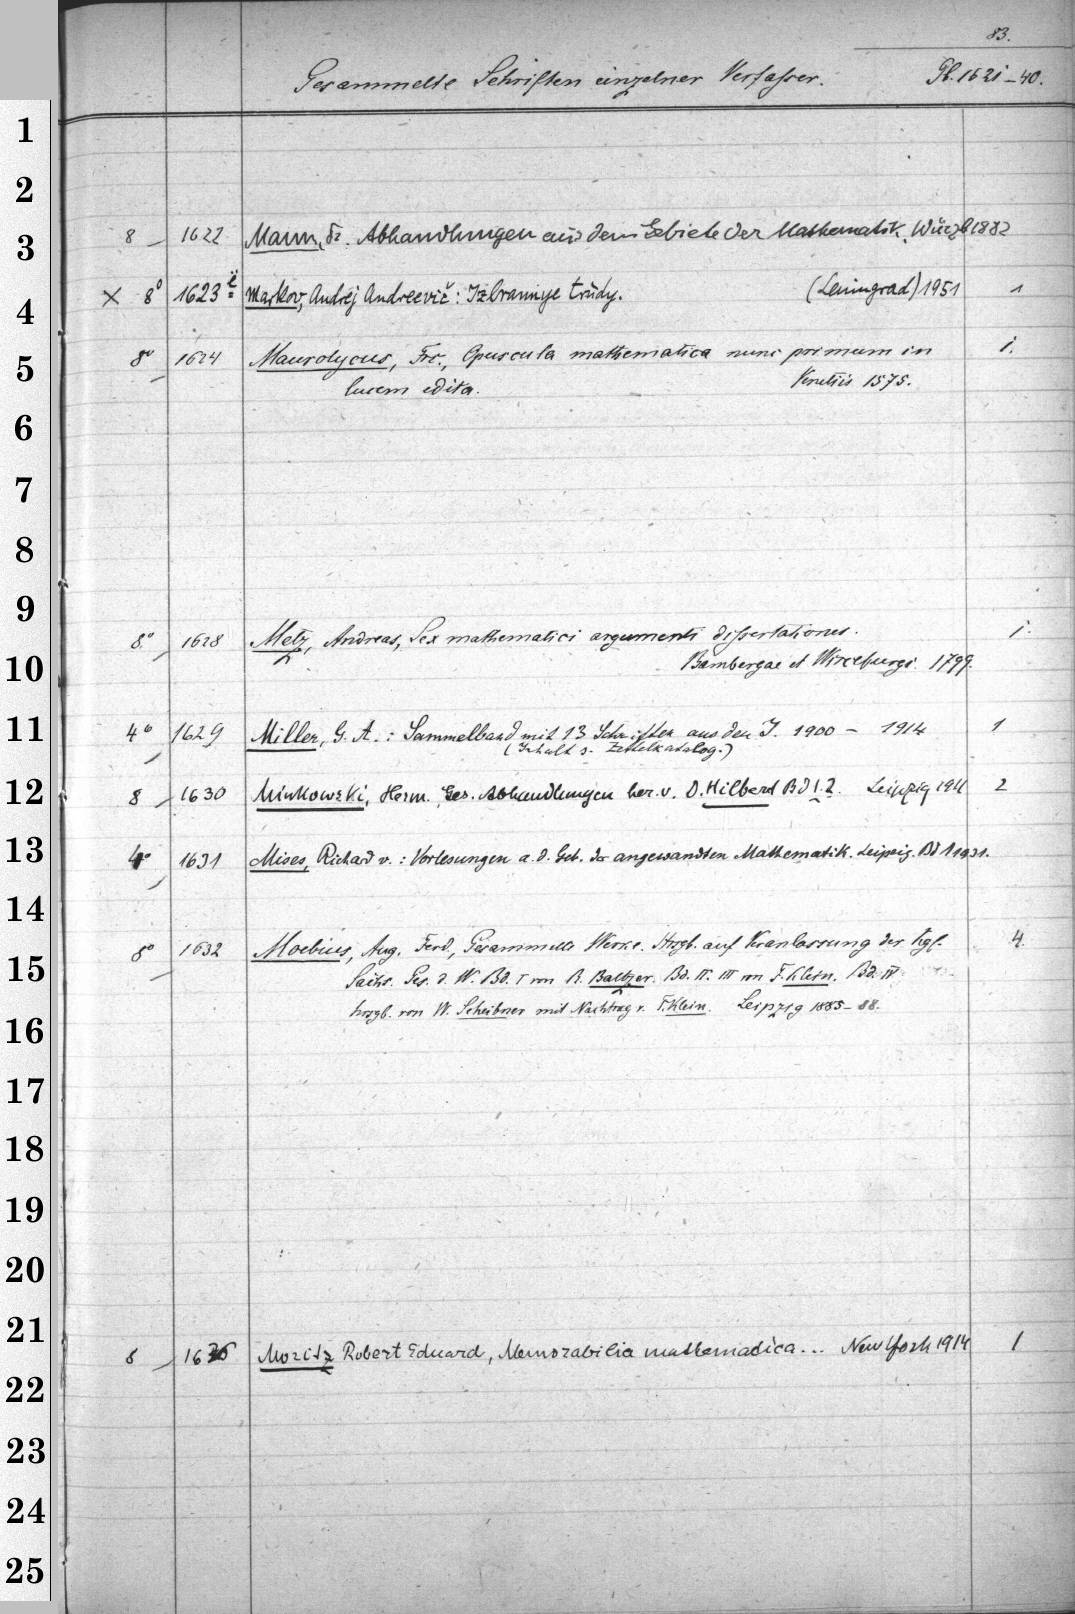 83.
Gesammelte Schriften einzelner Verfasser. 1621-40.
1
2
3
8 1622 Mann, Fr. Abhandlungen aus dem Gebiete der Mathematik. Würzb 1882
4
× 8° 1623 Markov, Andrej Andreevič: Izbrannye trudy. (Leningrad) 1951 1
5
8° 1624 Maurolycus, Frc., Opuscula mathematica nunc primum in 1.
lucem edita. Venetiis 1575.
6
7
8
9
8° 1628 Metz, Andreas, Sex mathematici argumenti dissertationes. 1.
10
Bambergae et Wirceburgi. 1799.
11
4° 1629 Miller, G. A.: Sammelband mit 13 Schriften aus den J. 1900 - 1914 1
(Inhalt s. Zettelkatalog.)
12
8 1630 Minkowski, Herm. Ges. Abhandlungen her. v. D. Hilbert Bd 1.2. Leipzig 1911 2
13
4° 1631 Mises, Richard v.: Vorlesungen a. d. Geb. der angewandten Mathematik. Leipzig. Bd 1 1931.
14
8° 1632 Moebius, Aug. Ferd., Gesammelte Werke. Hrsgb. auf Veranlassung der kgl. 4.
15
Sächs. Ges. d. W. Bd. I von R. Baltzer. Bd. II. III von F. Klein. Bd. IV
hrsgb. von W. Scheibner mit Nachtrag v. F. Klein. Leipzig 1885-88.
16
17
18
19
20
21
8 1636 Moritz Robert Eduard, Memorabilia mathematica... New York 1914 1
22
23
24
25